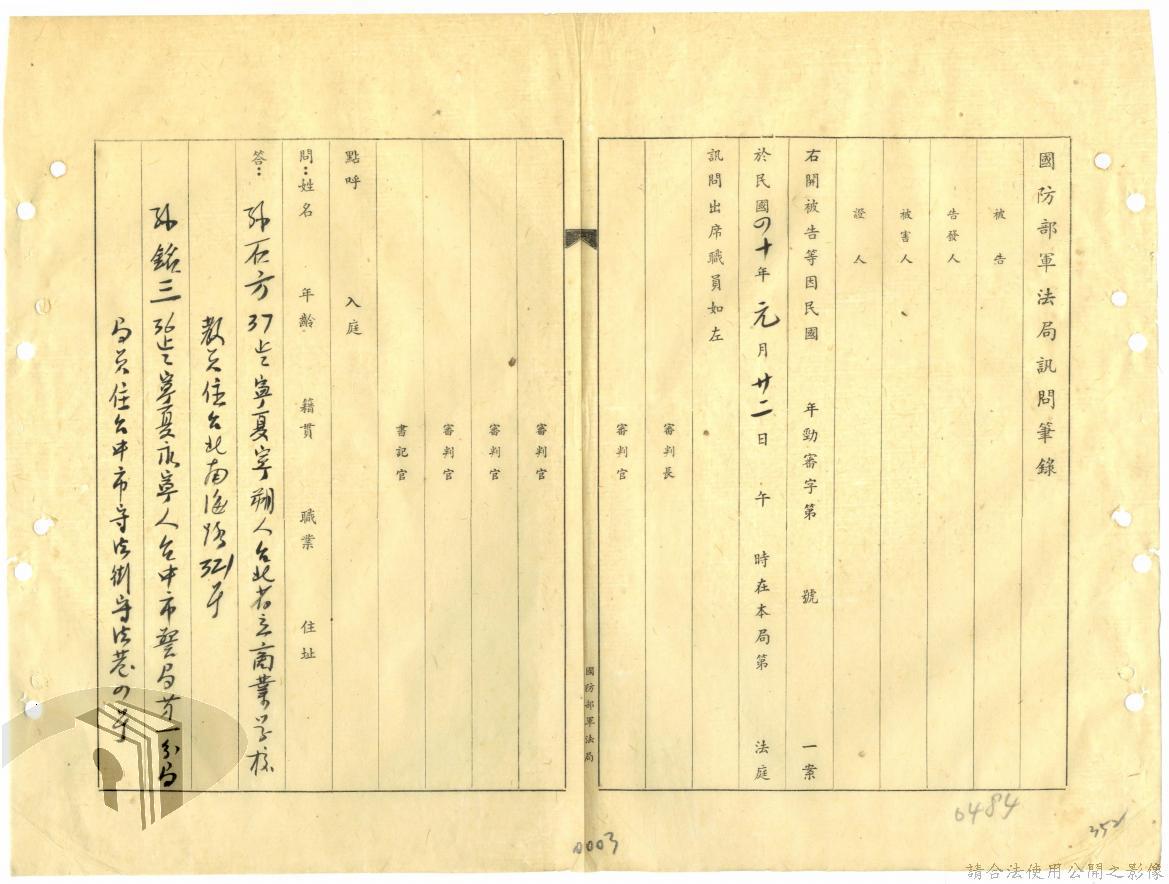 國防部軍法局訊問筆錄
被告
告發人
被害人
證人
右開被告等因民國 年勁審字第 號 一案
於民國四十年元月廿二日 午 時在本局第 法庭
訊問出席職員如左
審判長
審判官
國防部軍法局
審判官
審判官
審判官
書記官
點呼 入庭
問：姓名 年齡 籍貫 職業 住址
答：孙石方 37 寧夏寧朔人台北省立商業学校
教员住台北南海路321号
孙銘三 36 寧夏永寧人台中市警局第一分局
局员住台中市守法街守法巷四号
0003
0484
352
請合法使用公開之影像